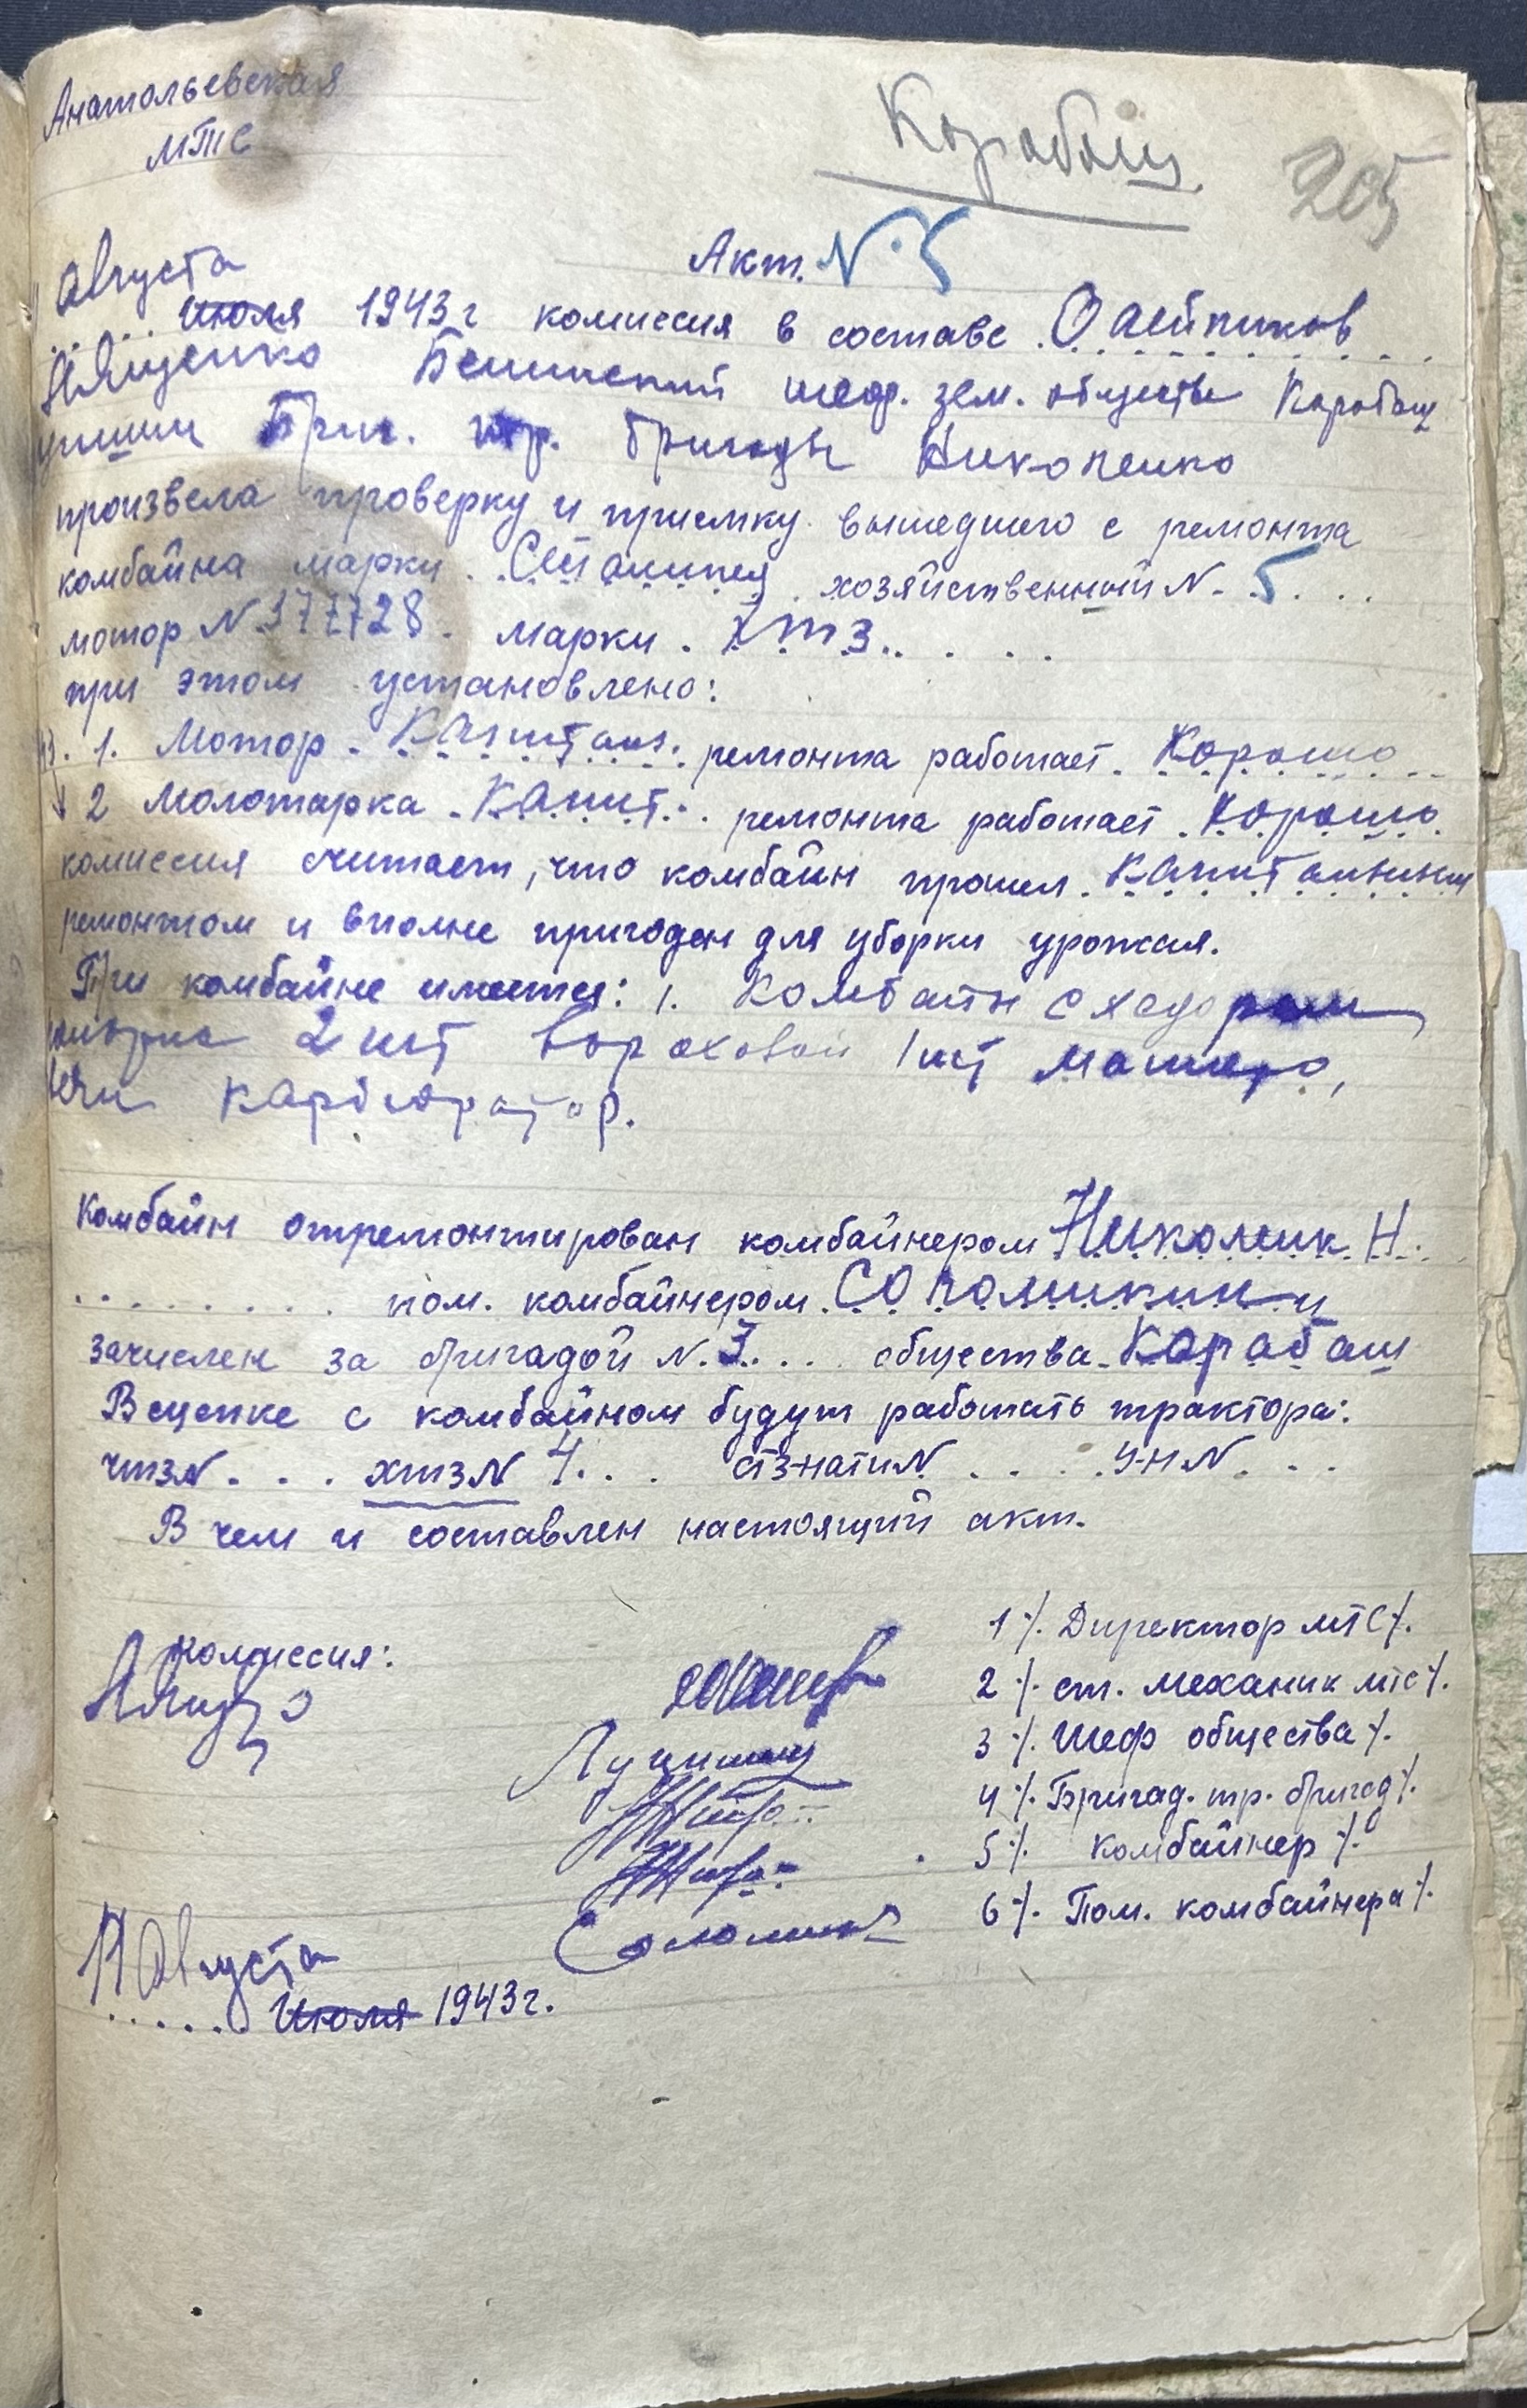 Анатольевская
МТС
Карабаш
205
Акт. N. 5
Августа
Июля 1943 г комиссия в составе
Ященко шеф. зем. общества Карабаш
Бриг. тр. бригады Николенко
произвела проверку и приемку вышедшего с ремонта
комбайна марки хозяйственный N. 5
мотор N 377728 марки ХТЗ
при этом установлено:
1. Мотор ремонта работает Хорошо
2 Молотарка Капит. ремонта работает Хорошо
комиссия считает, что комбайн прошел
ремонтом и вполне пригоден для уборки урожая.
При комбайне имеется: 1. Комбайн с хедером
2 шт вороховой 1 шт
карбюратор.
Комбайн отремонтирован комбайнером Николенк Н.
пом. комбайнером и
зачислен за бригадой N. 3 общества Карабаш
В сцепке с комбайном будут работать трактора:
чтз N . . . хтз N 4 . . стз-нати N . . . . У-Н N . . .
В чем и составлен настоящий акт.
комиссия:
1 ٪ Директор МТС ٪.
2 ٪ ст. механик мтс ٪.
3 ٪ Шеф общества ٪.
4 ٪ Бригад. тр. бригад ٪.
5 ٪ комбайнер ٪.
6 ٪ Пом. комбайнера ٪.
Августа
Июля 1943 г.